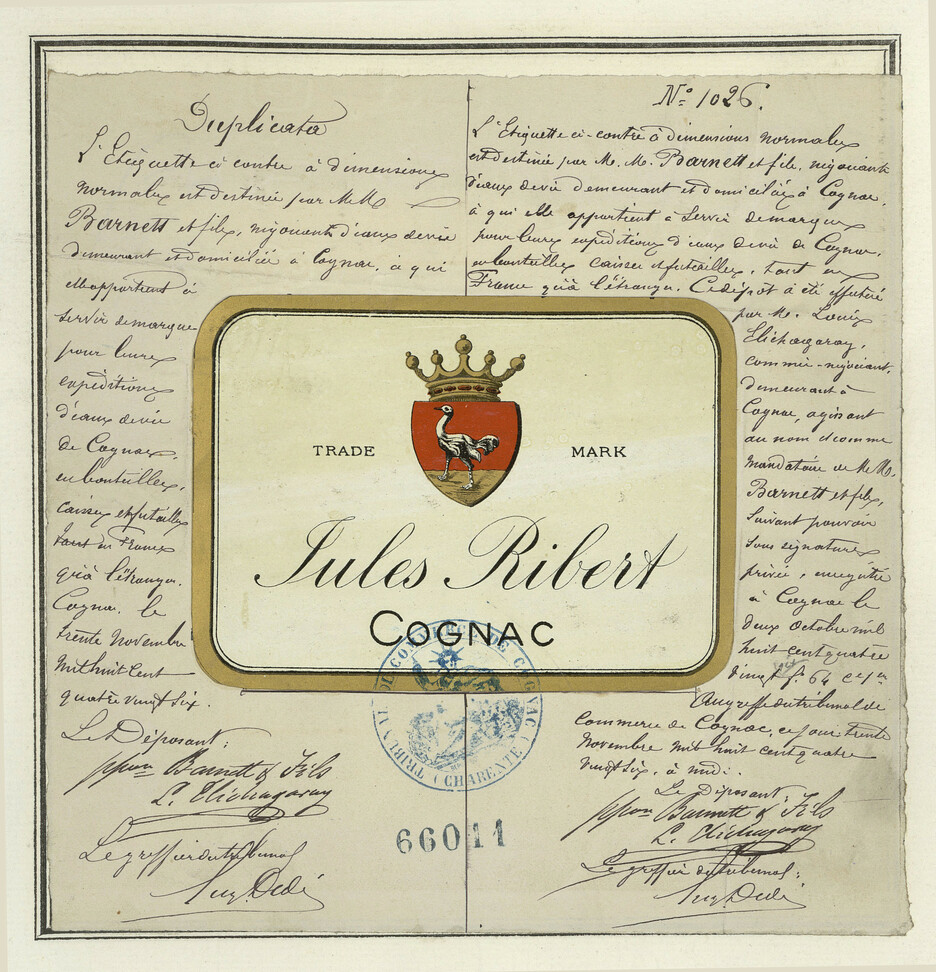 Duplicata
L'Etiquette ci contre à dimensions
normales est destinée par M.M.
Barnett et fils, négociants d'eaux de vie
demeurant et domiciliés à Cognac, à qui
elle appartient à
servir de marque
pour leurs
expéditions
d'eaux de vie
de Cognac,
en bouteilles,
caisses et futailles
tant en France
qu'à l'étranger.
Cognac, le
trente Novembre
mil huit cent
quatre vingt six.
Le Déposant:
ppon Barnett & Fils
L. Elichagaray
Le greffier du tribunal
Aug. Dedé
No 1026.
L'Etiquette ci-contre à dimensions normales
est destinée par M. M. Barnett et fils, négociants
d'eaux de vie demeurant et domiciliés à Cognac,
à qui elle appartient à servir de marque
pour leurs expéditions d'eaux de vie de Cognac,
en bouteilles caisses et futailles, tant en
France qu'à l'étranger. Ce dépôt a été effectué
par M. Louis
Elichagaray,
commis-négociant,
demeurant à
Cognac, agissant
au nom et comme
mandataire de M.M.
Barnett et fils,
suivant pouvoir
sous signatures
privée, enregistré
à Cognac le
deux Octobre mil
huit cent quatre
vingt six fo. 64 c. 1re
Au greffe du tribunal de
Commerce de Cognac, ce jour trente
Novembre mil huit cent quatre
vingt six, à midi.
Le Déposant
ppon Barnett & Fils
L. Elichagaray
Le greffier du tribunal:
Aug. Dedé
TRADE MARK
Jules Ribert
COGNAC
TRIBUNAL DE COMMERCE DE COGNAC (CHARENTE)
66011